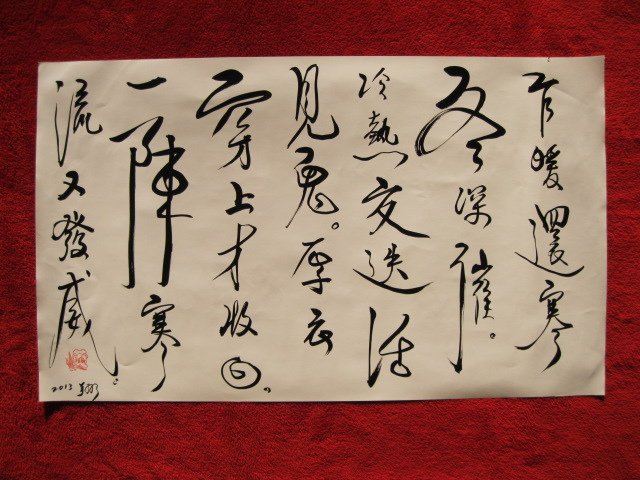 乍暖還寒
冬深催。
冷熱交迭活
見鬼。厚衣
穿上才收回,
一陣寒
流又發威。
2013